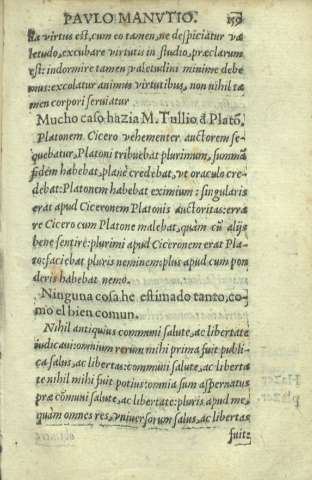 PAVLO MANVTIO. 150
ea virtus est, cum eo tamen, ne despiciatur va
letudo, excubare virtutis in studio, præclarum
est: indormire tamen valetudini minime debe
mus: excolatur animus virtutibus, non nihil ta
men corpori seruiatur
Mucho caso hazia M. Tullio đ Platõ.
Platonem Cicero vehementer auctorem se-
quebatur, Platoni tribuebat plurimum, summã
fidem habebat, planè credebat, vt oraculo cre-
debat: Platonem habebat eximium: singularis
erat apud Ciceronem Platonis auctoritas: erra
re Cicero cum Platone malebat, quàm cũ alijs
bene sentire: plurimi apud Ciceronem erat Pla-
to: faciebat pluris neminem: plus apud eum pon
deris habebat nemo.
Ninguna cosa he estimado tanto, co-
mo el bien comun.
Nihil antiquius communi salute, ac libertate
iudicaui: omnium rerum mihi prima fuit publi-
ca salus, ac libertas: communi salute, ac libertate
nihil mihi fuit potius: omnia sum aspernatus
præ cõmuni salute, ac libertate: pluris apud me,
quàm omnes res, vniuersorum salus, ac libertas
fuit: